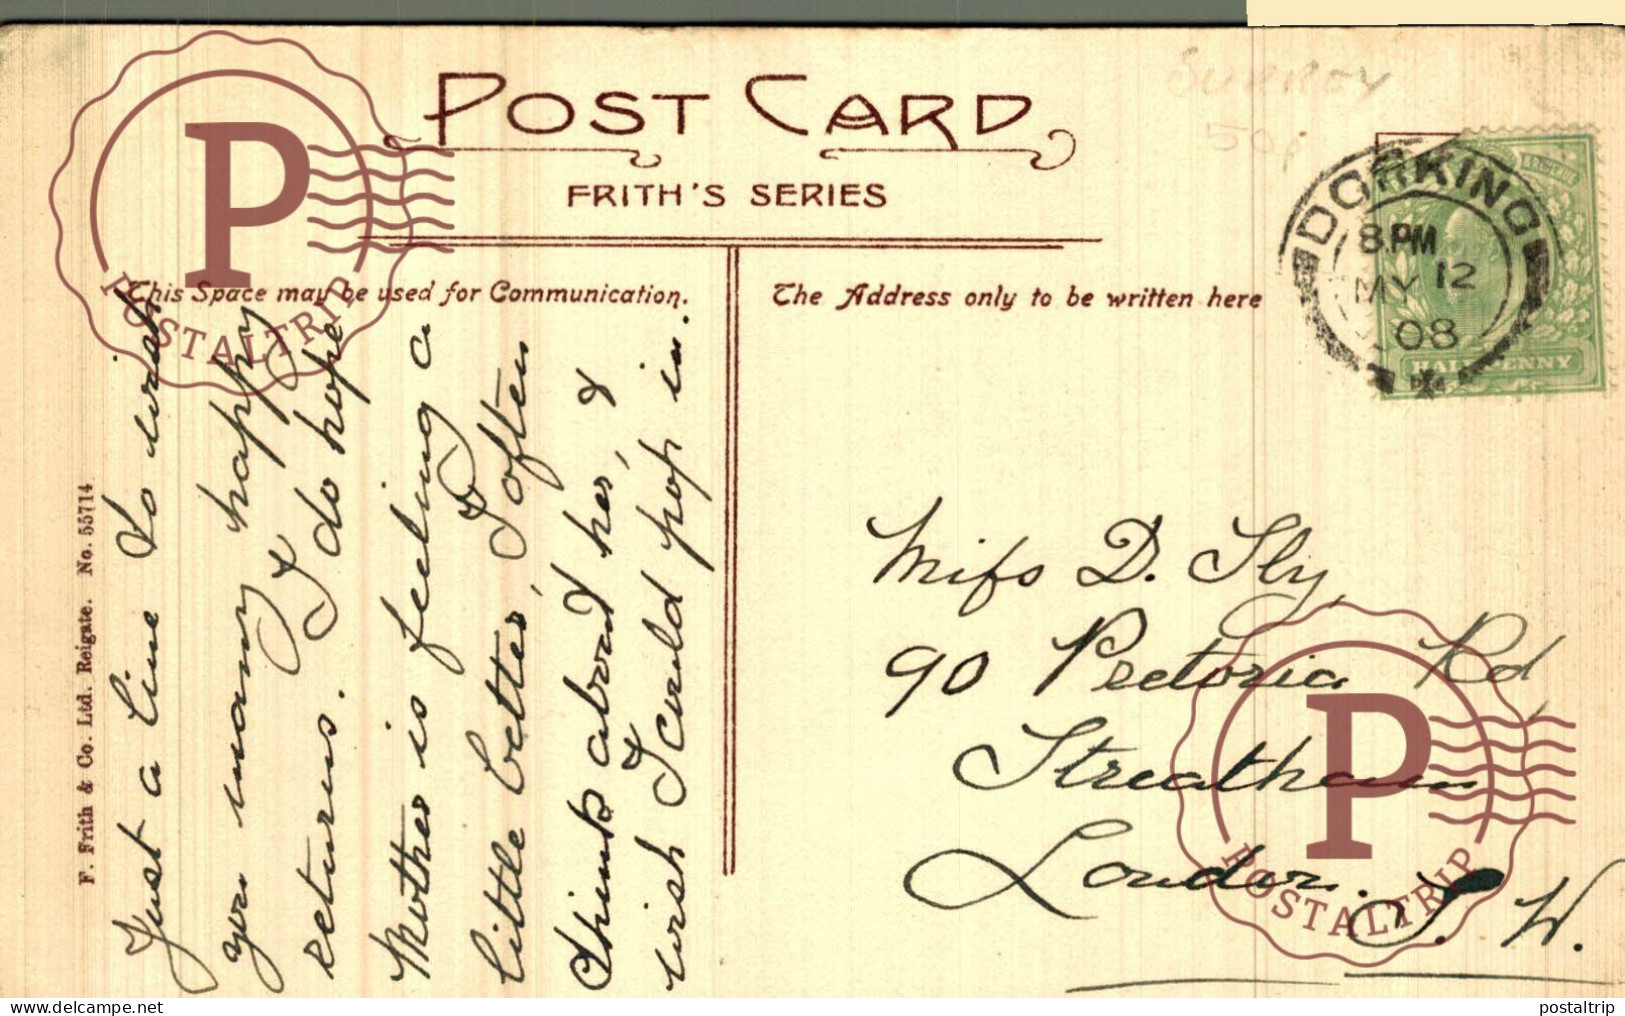 POST CARD
FRITH'S SERIES
This Space may be used for Communication.
The Address only to be written here
SURREY
50p
DORKING
8.PM
MY 12
08
HALFPENNY
F. Frith & Co. Ltd. Reigate. No. 55714
Just a line to wish
you many happy
returns. I do hope
Mother is feeling a
little better, I often
think about her, &
wish I could pop in.
Miss D. Sly,
90 Pretoria Rd,
Streatham
London. S. W.
P
POSTALTRIP
P
POSTALTRIP
www.delcampe.net
postaltrip